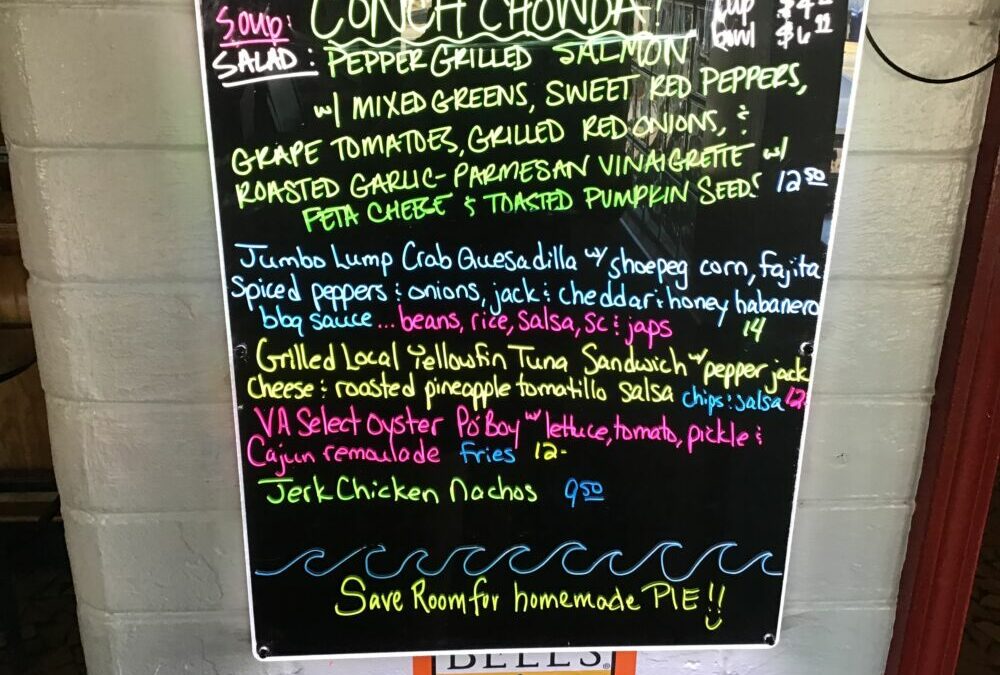 Soup: CONCH CHOWDA! cup $4
bowl $6
SALAD: PEPPER GRILLED SALMON
w/ MIXED GREENS, SWEET RED PEPPERS,
GRAPE TOMATOES, GRILLED RED ONIONS, &
ROASTED GARLIC-PARMESAN VINAIGRETTE w/
FETA CHEESE & TOASTED PUMPKIN SEEDS 12.50
Jumbo Lump Crab Quesadilla w/ shoepeg corn, fajita
Spiced peppers & onions, jack & cheddar & honey habanero
bbq sauce... beans, rice, salsa, sc & japs 14
Grilled Local Yellowfin Tuna Sandwich w/ pepper jack
cheese & roasted pineapple tomatillo salsa chips & salsa 12
VA Select Oyster Po'Boy w/ lettuce, tomato, pickle &
Cajun remoulade fries 12-
Jerk Chicken Nachos 9.50
Save Room for homemade PIE!!
BELL'S